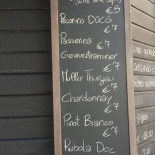 €5
Pecorino DOCG
€7
Passerina
€7
Gewürztraminer
€7
Müller Thurgau
€7
Chardonnay
€7
Pinot Bianco
€7
Ribolla Doc
€7